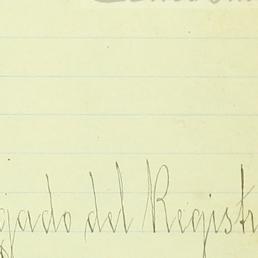 gado del Regist